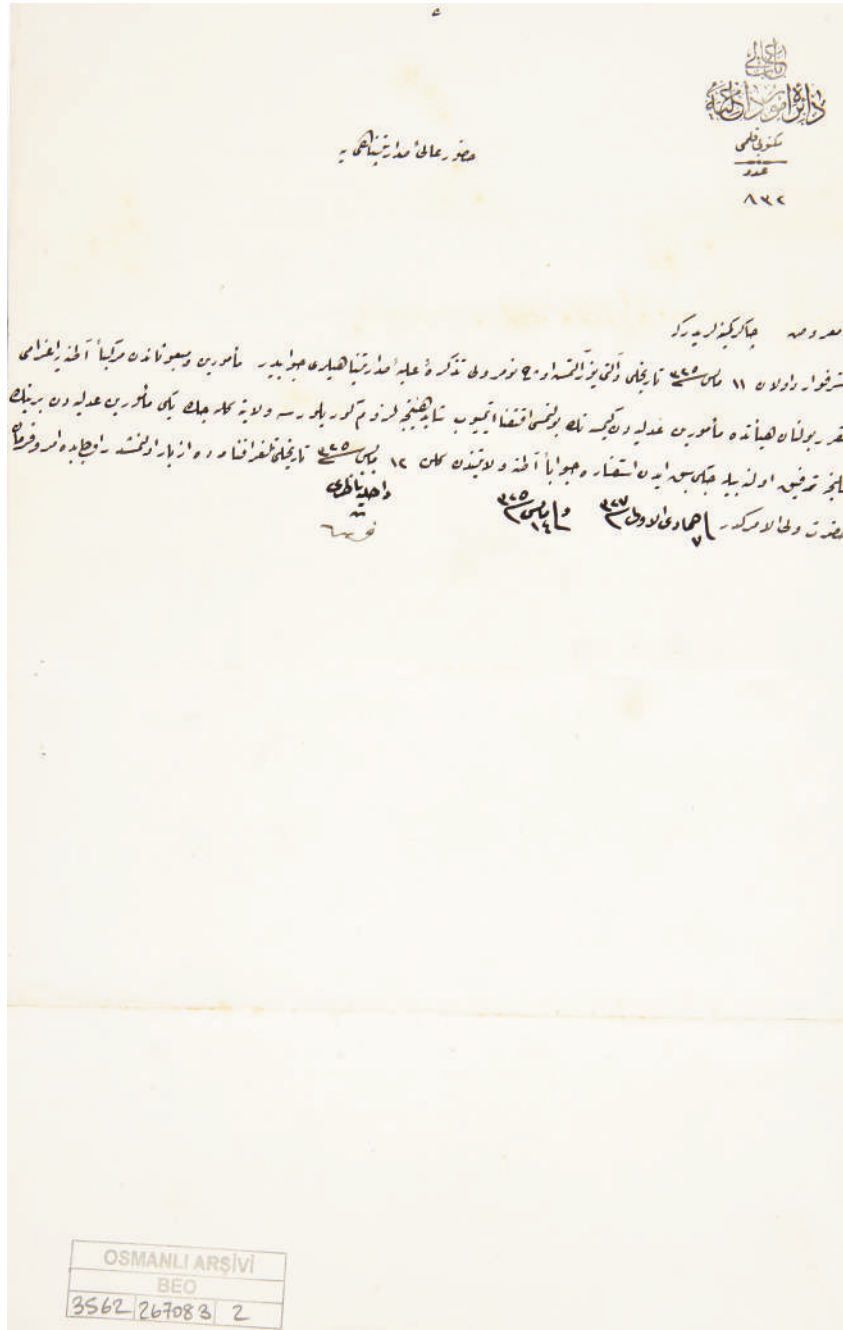 باب عالی
دائرهٔ امور داخلیه
مكتوبی قلمی
عدد
٨٣٢
حضور عالیٔ صدارتپناهی یه
معروض چاكر كمینه لریدر كه
شرفوارد اولان ١١ مایس ٣٢٥ تاریخلی و التیوز التمش نومرولی تذكرهٔ علیهٔ صدارتپناهیلری جوابیدر مأمورین و مبعوثاندن مركباً آطنه یه اعزامی
مقرر بولنان هیأتده مأمورین عدلیه دن كیمسه نك بولنمسی اقتضا ایتمیوب هیئتجه لزوم كوریلورسه ولایته كله جك یكی مأمورین عدلیه دن برینك
ترفیق اولنه بیله جكی استفساره جواباً آطنه ولایتندن كلن ١٢ مایس ٣٢٥ تاریخلی تلغرافنامه ده ازبار اولنمشدر اولبابده امر و فرمان
حضرت ولی الامركدر ٧ جمادی الاولی ٣٢٧ ١٤ مایس ٣٢٥
داخلیه ناظری
OSMANLI ARŞİVİ
BEO
3562 267083 2